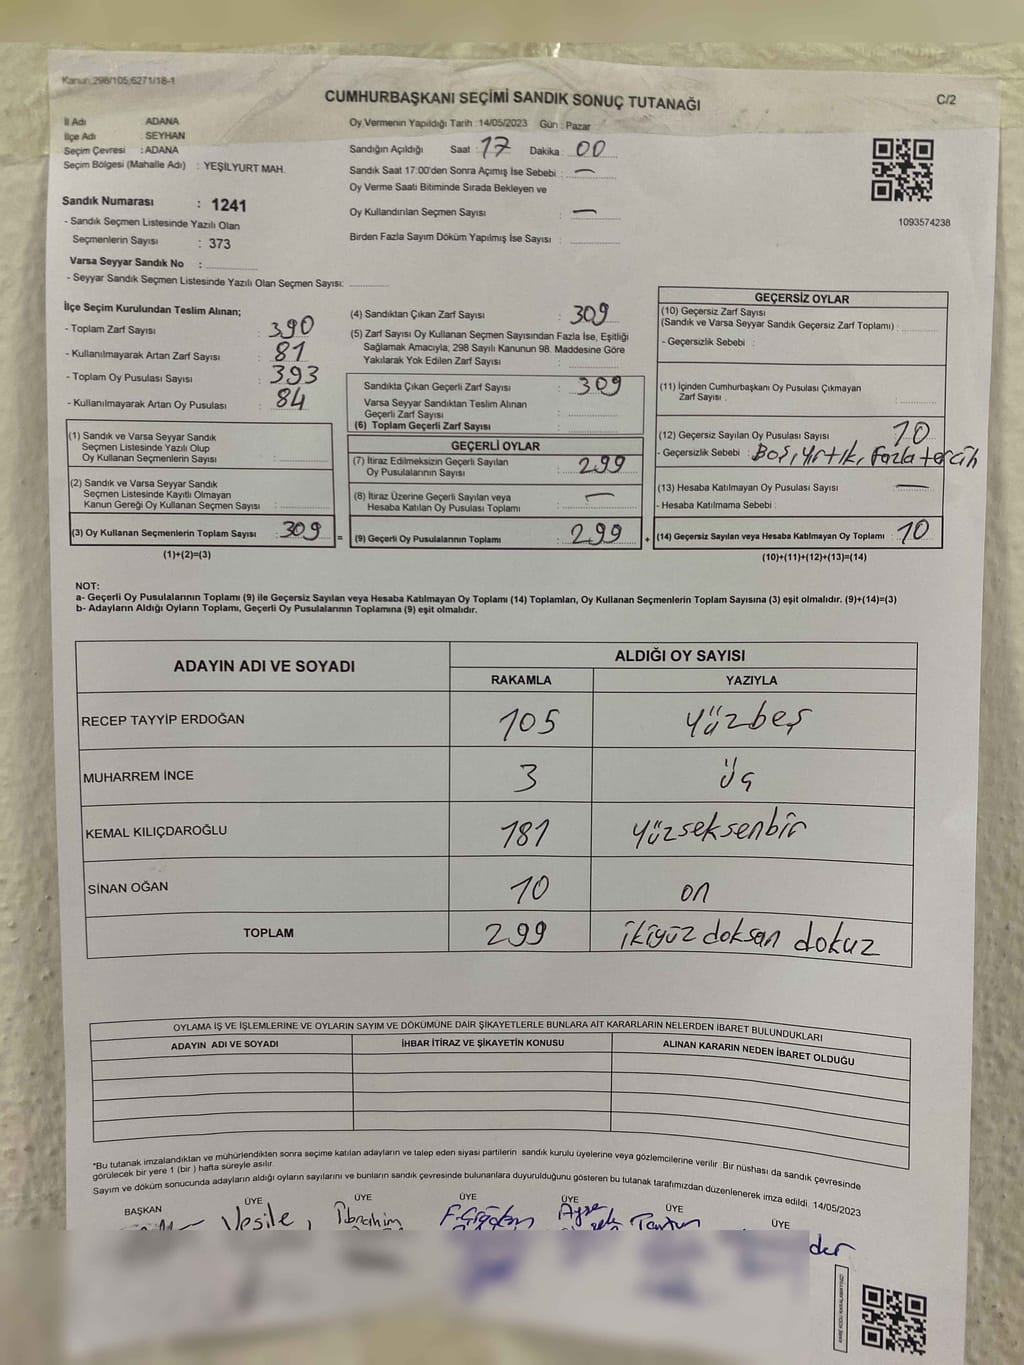 Kanun:298/105;6271/18-1
CUMHURBAŞKANI SEÇİMİ SANDIK SONUÇ TUTANAĞI
C/2
İl Adı ADANA
İlçe Adı : SEYHAN
Seçim Çevresi : ADANA
Seçim Bölgesi (Mahalle Adı) : YEŞİLYURT MAH.
Sandık Numarası : 1241
- Sandık Seçmen Listesinde Yazılı Olan
Seçmenlerin Sayısı : 373
Varsa Seyyar Sandık No :
- Seyyar Sandık Seçmen Listesinde Yazılı Olan Seçmen Sayısı:
Oy Vermenin Yapıldığı Tarih : 14/05/2023 Gün : Pazar
Sandığın Açıldığı Saat : 17 Dakika : 00
Sandık Saat 17:00'den Sonra Açılmış İse Sebebi : —
Oy Verme Saati Bitiminde Sırada Bekleyen ve
Oy Kullandırılan Seçmen Sayısı : —
Birden Fazla Sayım Döküm Yapılmış İse Sayısı :
1093574238
İlçe Seçim Kurulundan Teslim Alınan;
- Toplam Zarf Sayısı : 390
- Kullanılmayarak Artan Zarf Sayısı : 81
- Toplam Oy Pusulası Sayısı : 393
- Kullanılmayarak Artan Oy Pusulası : 84
(1) Sandık ve Varsa Seyyar Sandık
Seçmen Listesinde Yazılı Olup
Oy Kullanan Seçmenlerin Sayısı :
(2) Sandık ve Varsa Seyyar Sandık
Seçmen Listesinde Kayıtlı Olmayan
Kanun Gereği Oy Kullanan Seçmen Sayısı :
(3) Oy Kullanan Seçmenlerin Toplam Sayısı : 309 =
(1)+(2)=(3)
(4) Sandıktan Çıkan Zarf Sayısı : 309
(5) Zarf Sayısı Oy Kullanan Seçmen Sayısından Fazla İse, Eşitliği
Sağlamak Amacıyla, 298 Sayılı Kanunun 98. Maddesine Göre
Yakılarak Yok Edilen Zarf Sayısı :
Sandıkta Çıkan Geçerli Zarf Sayısı : 309
Varsa Seyyar Sandıktan Teslim Alınan
Geçerli Zarf Sayısı :
(6) Toplam Geçerli Zarf Sayısı :
GEÇERLİ OYLAR
(7) İtiraz Edilmeksizin Geçerli Sayılan
Oy Pusulalarının Sayısı : 299
(8) İtiraz Üzerine Geçerli Sayılan veya
Hesaba Katılan Oy Pusulası Toplamı : —
(9) Geçerli Oy Pusulalarının Toplamı : 299 +
GEÇERSİZ OYLAR
(10) Geçersiz Zarf Sayısı
(Sandık ve Varsa Seyyar Sandık Geçersiz Zarf Toplamı) :
- Geçersizlik Sebebi :
(11) İçinden Cumhurbaşkanı Oy Pusulası Çıkmayan
Zarf Sayısı :
(12) Geçersiz Sayılan Oy Pusulası Sayısı : 10
- Geçersizlik Sebebi : Boş, yırtık, fazla tercih
(13) Hesaba Katılmayan Oy Pusulası Sayısı : —
- Hesaba Katılmama Sebebi :
(14) Geçersiz Sayılan veya Hesaba Katılmayan Oy Toplamı : 10
(10)+(11)+(12)+(13)=(14)
NOT:
a- Geçerli Oy Pusulalarının Toplamı (9) ile Geçersiz Sayılan veya Hesaba Katılmayan Oy Toplamı (14) Toplamları, Oy Kullanan Seçmenlerin Toplam Sayısına (3) eşit olmalıdır. (9)+(14)=(3)
b- Adayların Aldığı Oyların Toplamı, Geçerli Oy Pusulalarının Toplamına (9) eşit olmalıdır.
ADAYIN ADI VE SOYADI ALDIĞI OY SAYISI
RAKAMLA YAZIYLA
RECEP TAYYİP ERDOĞAN 105 yüzbeş
MUHARREM İNCE 3 üç
KEMAL KILIÇDAROĞLU 181 yüzseksenbir
SİNAN OĞAN 10 on
TOPLAM 299 ikiyüz doksan dokuz
OYLAMA İŞ VE İŞLEMLERİNE VE OYLARIN SAYIM VE DÖKÜMÜNE DAİR ŞİKAYETLERLE BUNLARA AİT KARARLARIN NELERDEN İBARET BULUNDUKLARI
ADAYIN ADI VE SOYADI İHBAR İTİRAZ VE ŞİKAYETİN KONUSU ALINAN KARARIN NEDEN İBARET OLDUĞU
*Bu tutanak imzalandıktan ve mühürlendikten sonra seçime katılan adayların ve talep eden siyasi partilerin sandık kurulu üyelerine veya gözlemcilerine verilir. Bir nüshası da sandık çevresinde
görülecek bir yere 1 (bir) hafta süreyle asılır.
Sayım ve döküm sonucunda adayların aldığı oyların sayılarını ve bunların sandık çevresinde bulunanlara duyurulduğunu gösteren bu tutanak tarafımızdan düzenlenerek imza edildi. 14/05/2023
BAŞKAN ÜYE ÜYE ÜYE ÜYE ÜYE ÜYE
Vesile İbrahim Ayşe